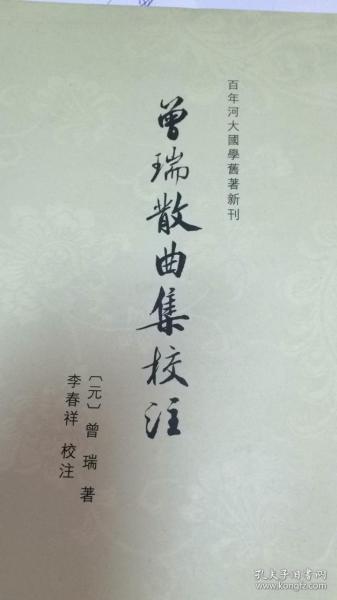 百年河大國學舊著新刊
曾瑞散曲集校注
〔元〕曾瑞 著
李春祥 校注
孔夫子旧书网